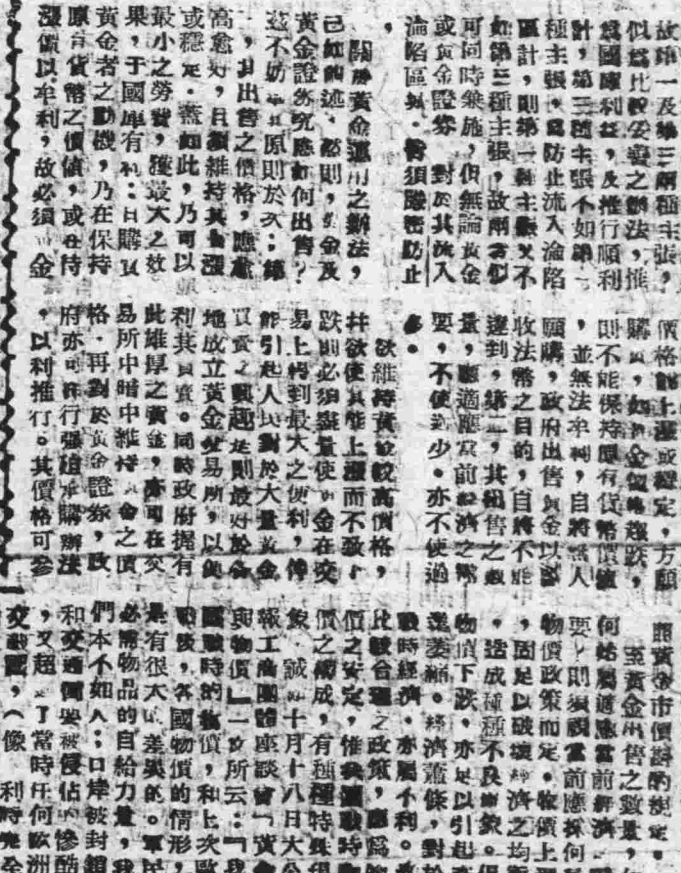 故第一及第三兩種主張，
似為比較妥善之辦法，惟
為國庫利益，及推行順利
計，第三種主張不如第一
種主張，為防止流入淪陷
區計，則第一種主張又不
如第三種主張，故兩者似
可同時兼施，但無論黃金
或黃金證券，對於其流入
淪陷區域，皆須嚴密防止
，
關於黃金運用之辦法，
已如前述，然則，黃金及
黃金證券究應如何出售？
茲不妨舉其原則於次：第
一，其出售之價格，應愈
高愈好，且須維持其上漲
或穩定，蓋如此，乃可以
最小之勞費，獲最大之效
果，于國庫有利；且購買
黃金者之動機，乃在保持
原有貨幣之價值，或在待
漲價以牟利，故必須黃金
價格能上漲或穩定，方願
購買，如黃金價格趨跌，
則不能保持原有貨幣價值
，並無法牟利，自將無人
願購，政府出售黃金以
收法幣之目的，自將不能
達到，第二，其出售之數
量，應適應當前經濟之需
要，不使過少，亦不使過
多。
欲維持黃金較高價格，
并欲使其能上漲而不致下
跌則必須盡量使黃金在交
易上得到最大之便利，
能引起人民對於大量黃金
買賣之興趣是則最好於各
地成立黃金交易所，以便
利其買賣。同時政府握有
此雄厚之黃金，亦可在交
易所中暗中維持黃金之價
格，再對於黃金證券，政
府亦可推行强迫承購辦法
，以利推行。其價格可參
照黃金市價斟酌規定。
至黃金出售之數量，
何始屬適應當前經濟
要，則須視當前應採何
物價政策而定。物價上
，固足以破壞經濟之均
，造成種種不良現象。
物價下跌，亦足以引起
業萎縮。經濟蕭條，對於
戰時經濟，亦屬不利。
比較合理之政策，應為
價之安定，惟我國戰時
價之構成，有種種特殊
，誠如十月十八日大公
報工商團體座談會「黃金
與物價」一文所云：「我
國戰時的物價，和上次歐
戰後，各國物價的情形，
是有很大的差異的。軍民
必需物品的自給力量，我
們本不如人；口岸被封鎖
和交通側要被侵佔的慘酷
，又超過了當時任何歐洲
交戰國，（像　利時完全